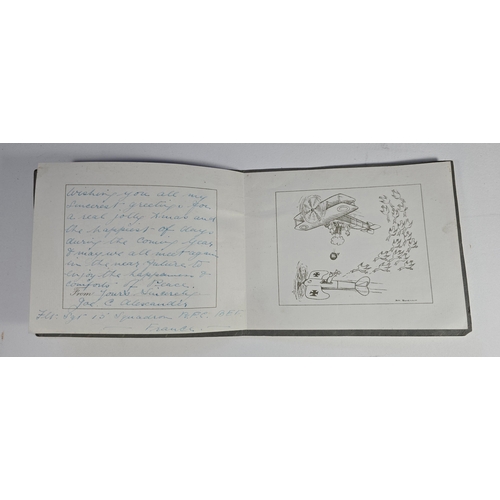 Wishing you all my
sincerest greetings for
a real jolly Xmas and
the happiest of days
during the coming year
& may we all meet again
in the near future to
enjoy the happiness &
comforts of Peace.
From Yours Sincerely
C Alexander
Squadron R.F.C.
France